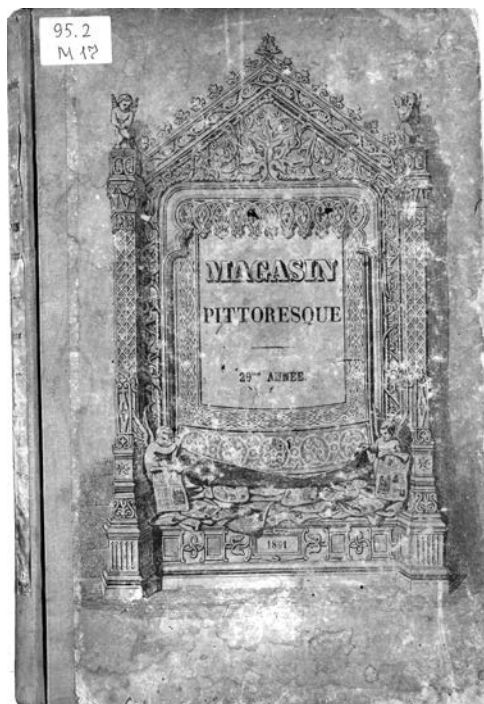 95.2
M 17
MAGASIN
PITTORESQUE
29me ANNÉE.
1861